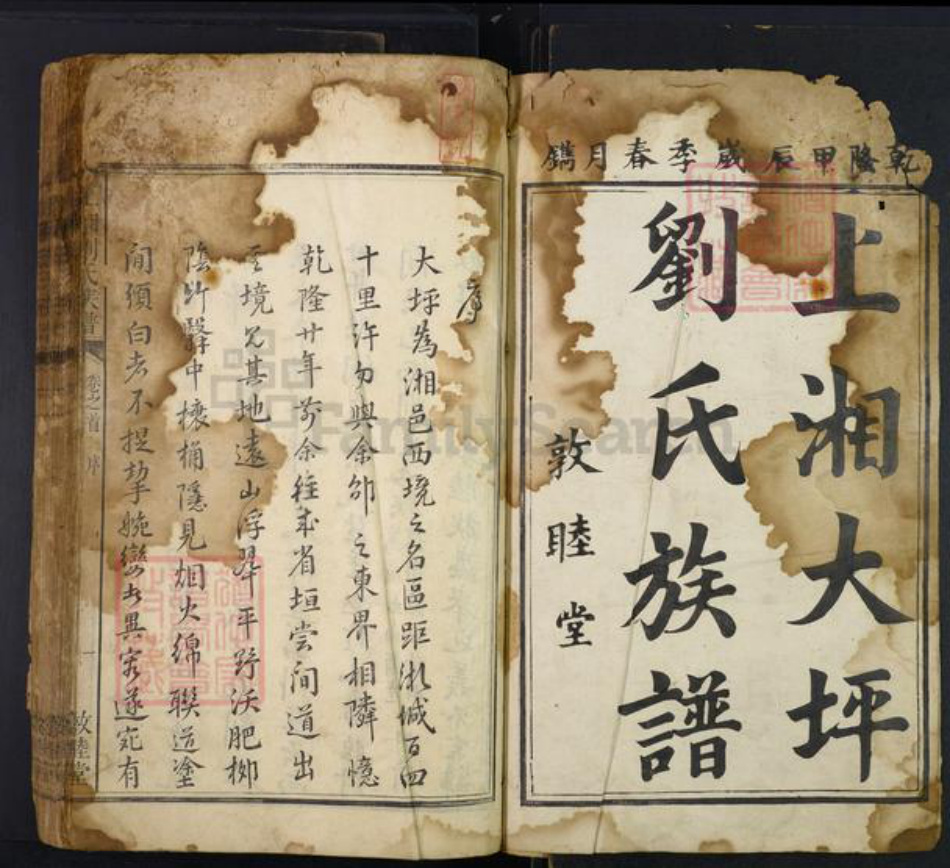 乾隆甲辰歲季春月鐫
上湘大坪
劉氏族譜
敦睦堂
序
大坪為湘邑西境之名區距湘城百四
十里許勿與余邵之東界相隣憶
乾隆廿年前余往來省垣嘗間道出
境見其地遠山浮翠平野沃肥柳
陰竹翳中榱桷隱見烟火綿聯道塗
間頒白者不提挈婉孌者異寃遂宛有
劉氏族譜
卷之首
序
敦睦堂
FamilySearch